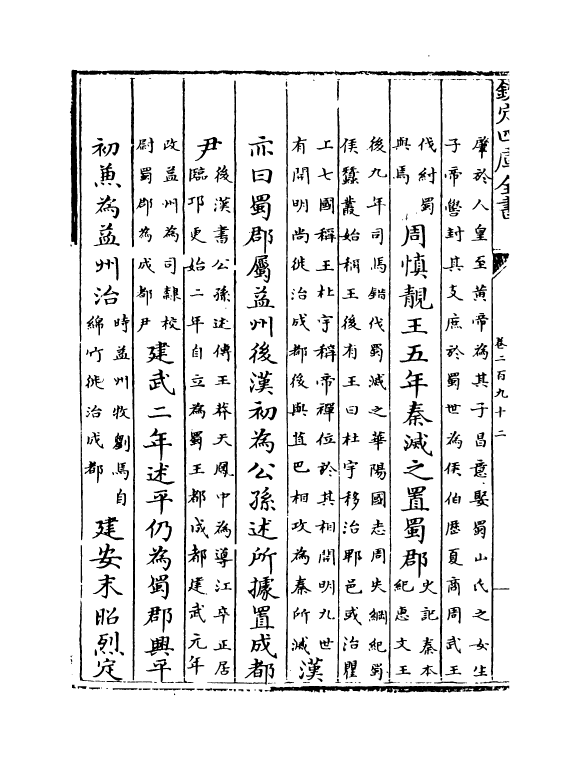 欽定四庫全書
卷二百九十二
肇於人皇至黄帝為其子昌意娶蜀山氏之女生
子帝嚳封其支庶於蜀世為侯伯歴夏商周武王
伐紂蜀
與焉
周慎靚王五年秦滅之置蜀郡
史記秦本
紀惠文王
後九年司馬錯伐蜀滅之華陽國志周失綱紀蜀
侯蠶叢始稱王後有王曰杜宇移治郫邑或治瞿
上七國稱王杜宇稱帝禪位於其相開明九世
有開明尚徙治成都後與苴巴相攻為秦所滅
漢
亦曰蜀郡屬益州後漢初為公孫述所據置成都
尹
後漢書公孫述傳王莽天鳳中為導江卒正居
臨邛更始二年自立為蜀王都成都建武元年
改益州為司隸校
尉蜀郡為成都尹
建武二年述平仍為蜀郡興平
初兼為益州治
時益州牧劉焉自
綿竹徙治成都
建安末昭烈定